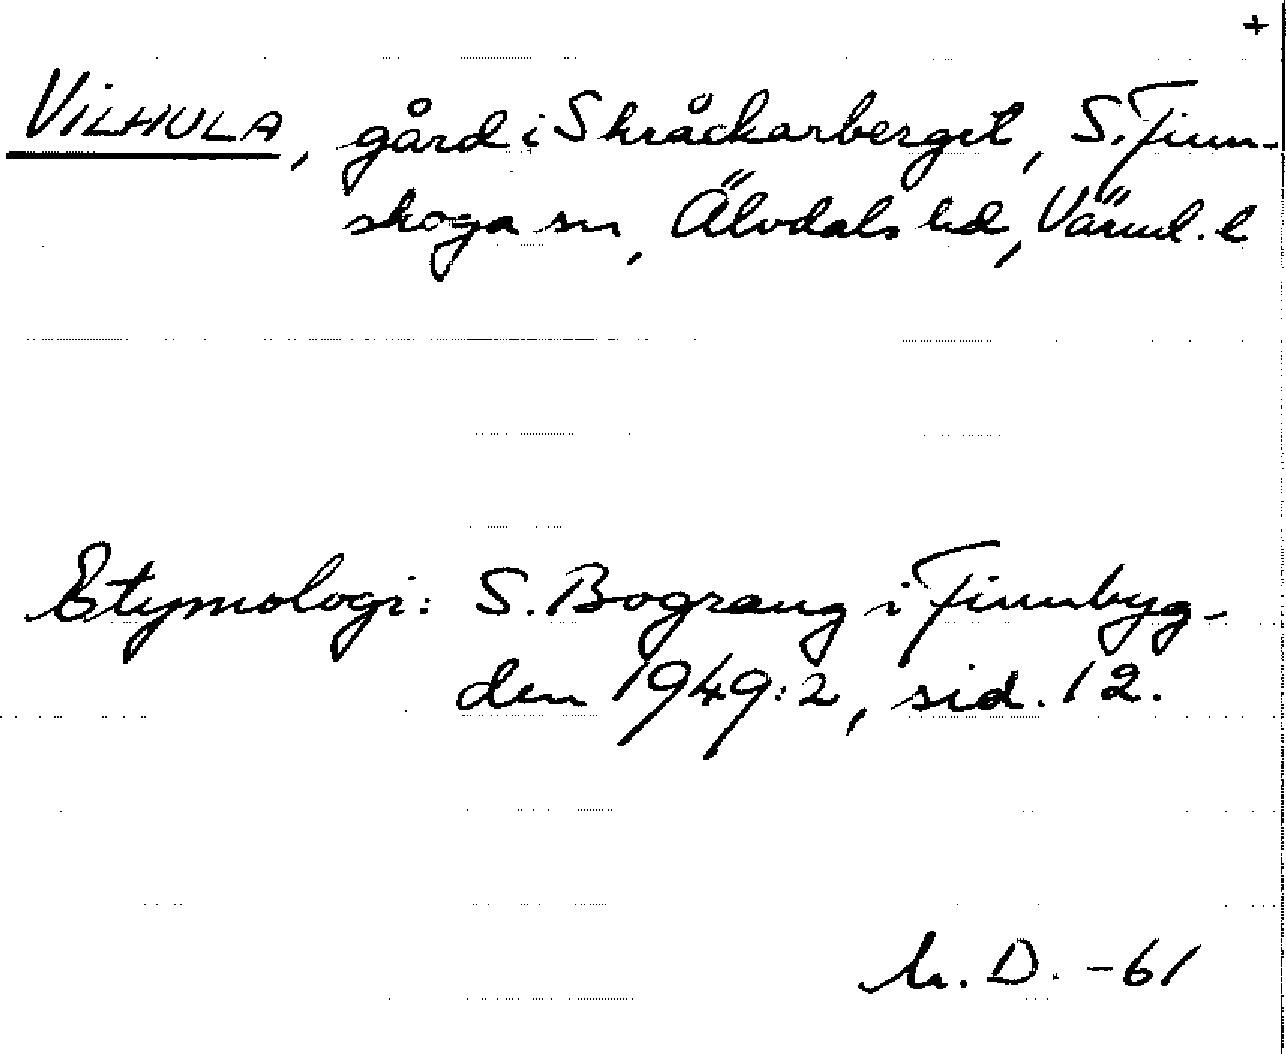 +
VILHULA, gård i Skråckarberget, S. Finn-
skoga sn, Älvdals hd, Värml. l
Etymologi: S. Bograng i Finnbyg-
den 1949:2, sid. 12.
D. -61